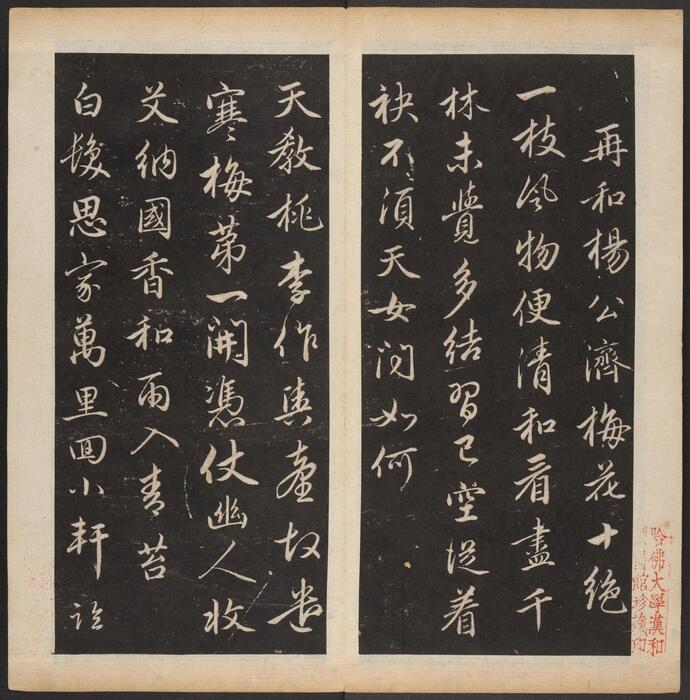 再和楊公濟梅花十絶
一枝風物便清和看盡千
林未覺多結習已空從着
袂不須天女問如何
天教桃李作輿臺故遣
寒梅第一開憑仗幽人收
艾納國香和雨入青苔
白髮思家萬里回小軒
哈佛大學漢和
圖書館珍藏印